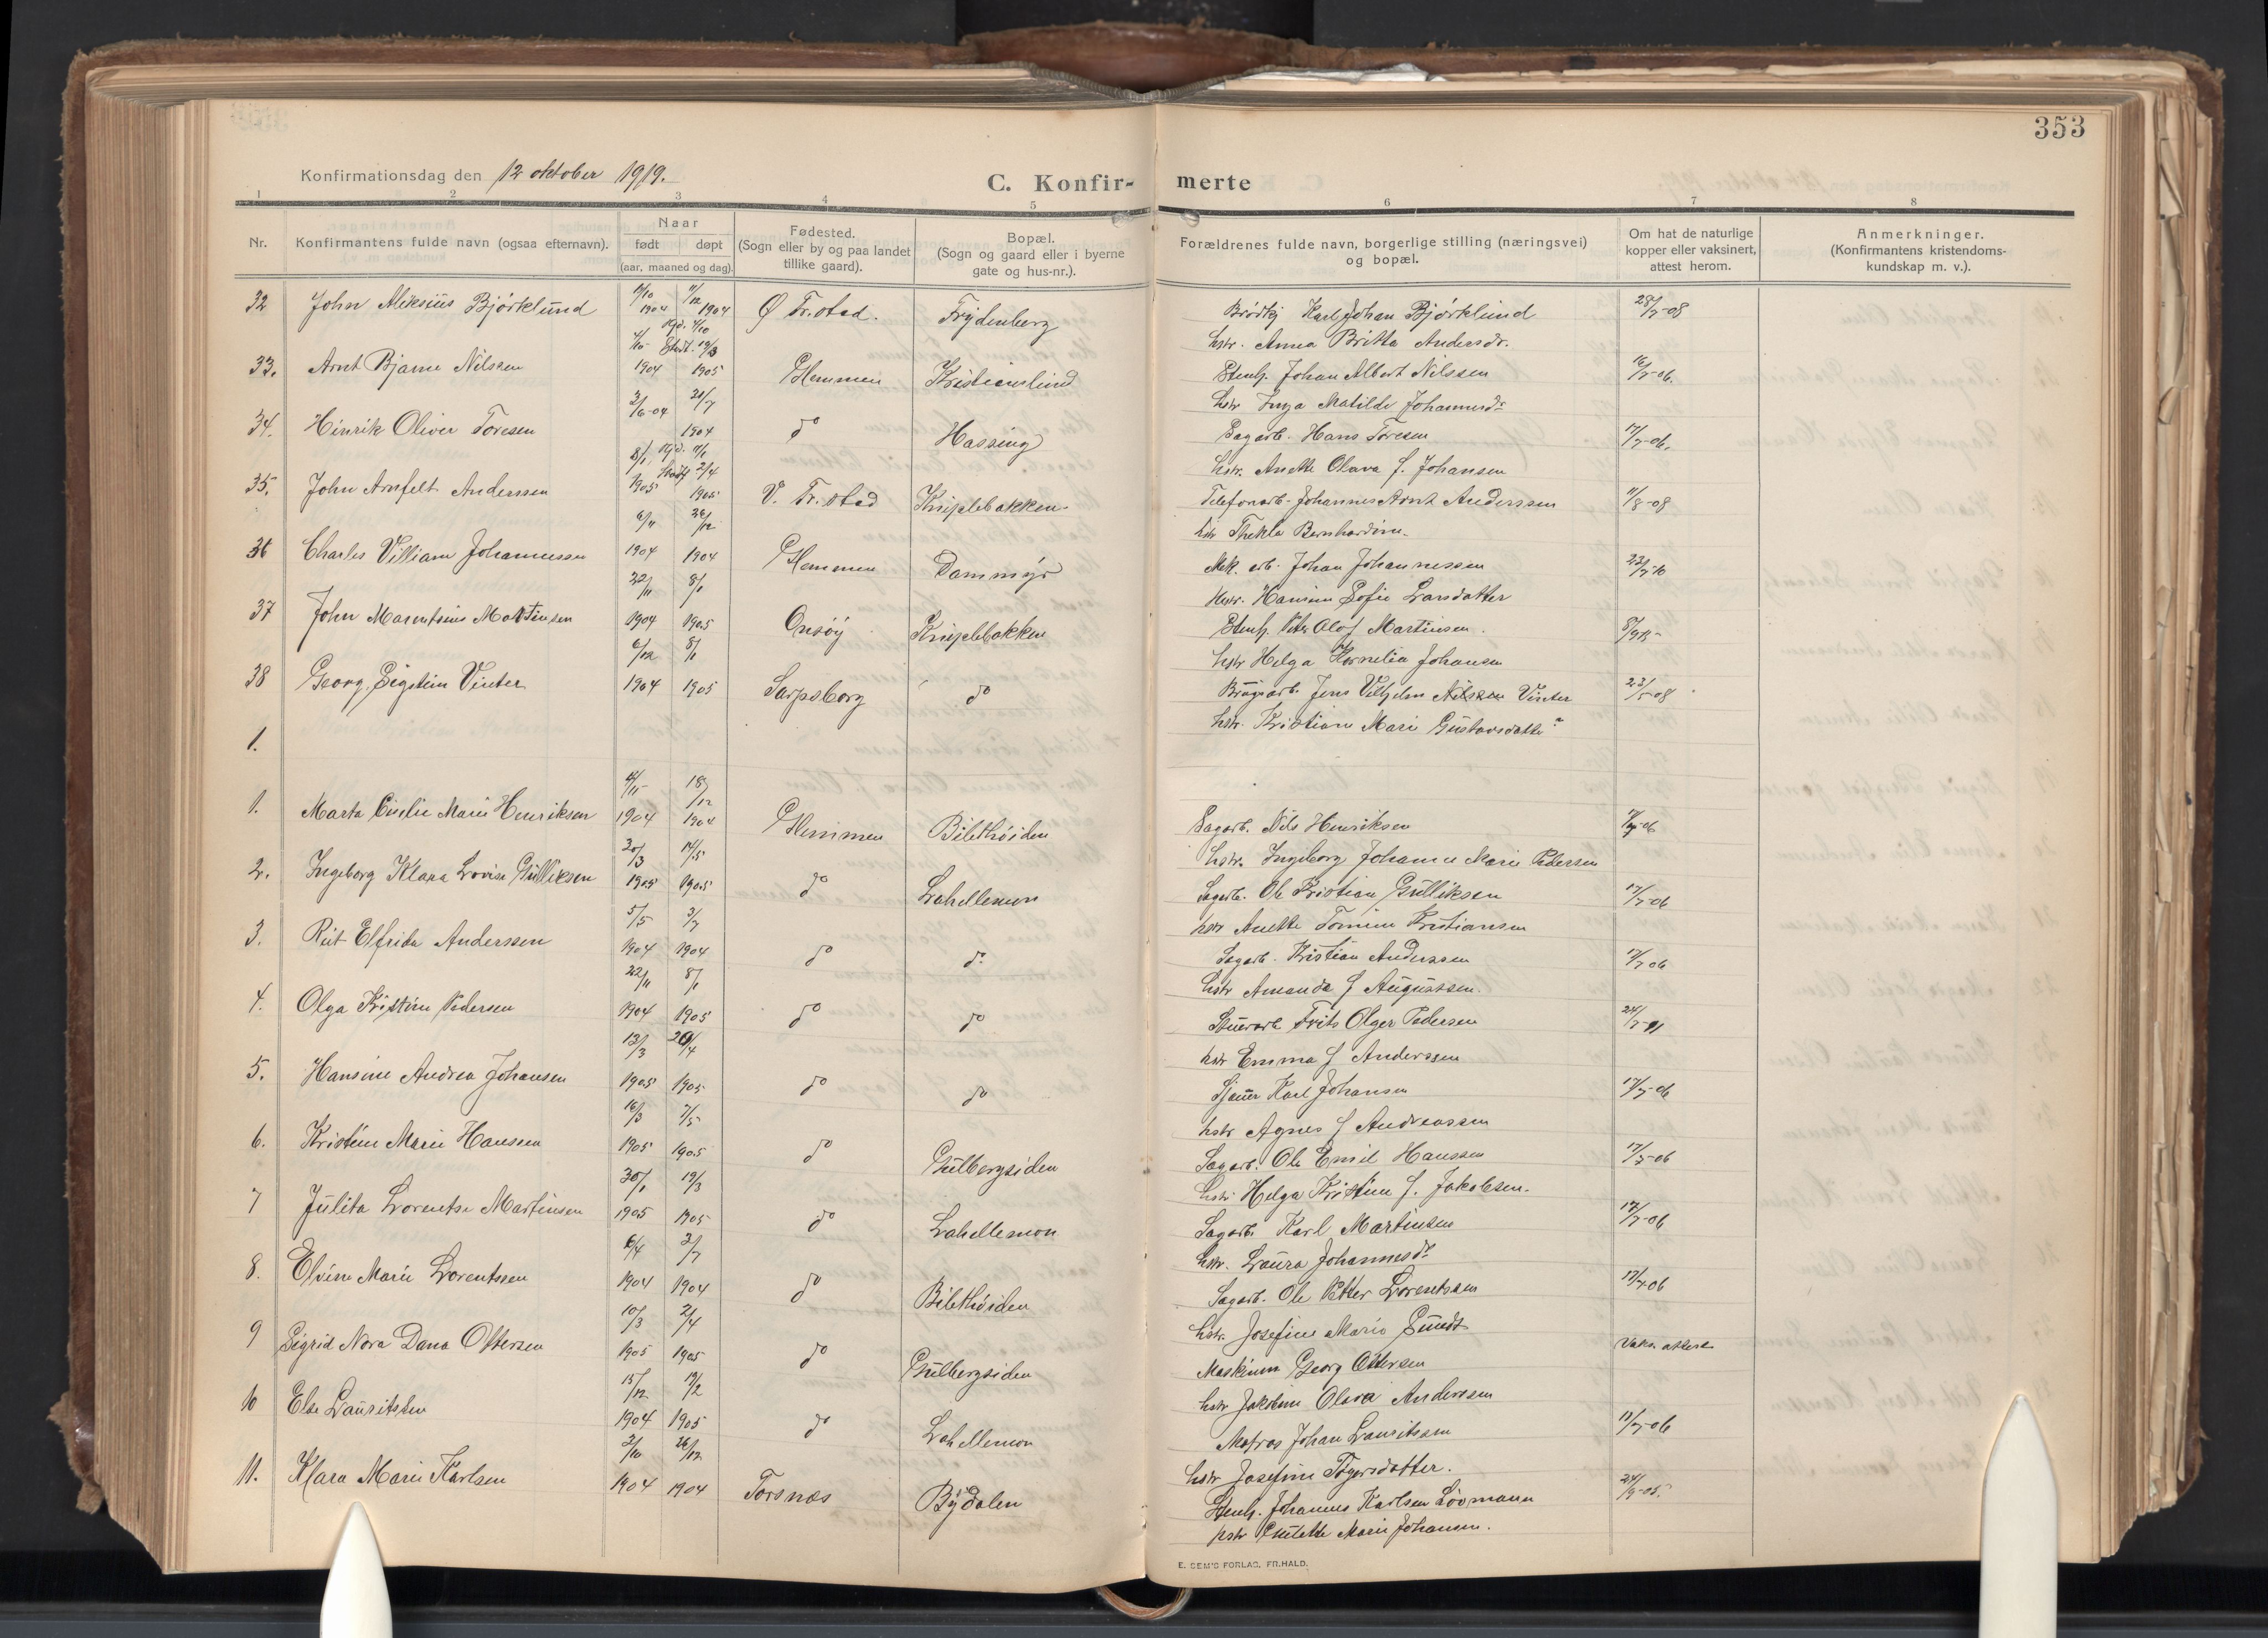 353
Konfirmationsdag den 12 oktober 1919.
C. Konfir- merte
1 2 3 4 5 6 7 8
Nr.
Konfirmantens fulde navn (ogsaa efternavn).
Naar
født døpt
(aar, maaned og dag).
Fødested.
(Sogn eller by og paa landet
tillike gaard).
Bopæl.
(Sogn og gaard eller i byerne
gate og hus-nr.).
Forældrenes fulde navn, borgerlige stilling (næringsvei)
og bopæl.
Om hat de naturlige
kopper eller vaksinert,
attest herom.
Anmerkninger.
(Konfirmantens kristendoms-
kundskap m. v.).
32 John Aleksius Bjørklund 1904 1904 Ø Fr.stad. Frydenberg Karl Johan Bjørklund 28/7-08
hstr. Anna Britta Andersdr.
33. Arnt Bjarne Nilssen 1904 1905 Glemmen Kristianslund Stenh. Johan Albert Nilssen 16/7-06.
hstr Inga Matilde Johannesdr
34. Hinrik Oliver Toresen 3/6-04 21/7 1904 do Hassing Sagarb. Hans Toresen 17/7-06.
hstr. Anette Olava f. Johansen
35. John Arnfelt Anderssen 8/1 1905 1905 V. Fr.stad Kniplebakken Telefonarb. Johannes Arnt Anderssen 11/8-08
hstr Thekla Bernhardine
36 Charles Villiam Johannessen 6/11 1904 26/12 1904 Glemmen Dammyr Mek. arb. Johan Johannessen
hstr. Hansine Sofie Larsdatter
37 John Marentsius Martinsen 22/11 1904 8/1 1905 Onsøy Kniplebakken Stenh. Peter Olof Martinsen.
hstr Helga Kornelia Johansen
38 Georg Sigstein Vinter 6/12 1904 8/1 1905 Sarpsborg do Jens Vilhjelm Nilssen Vinter
hstr. Kristiane Marie Gustavsdatter
1.
1. Marta Emilie Marie Henriksen 4/11 1904 18/12 1904 Glemmen Bilethøiden Sagarb. Nils Henriksen
hstr. Ingeborg Johanne Marie Pedersen
2. Ingeborg Klara Lovise Gulliksen 20/3 1905 14/5 1905 do Lahellemon Sagarb. Ole Kristian Gulliksen 17/7-06
hstr Anette Tomine Kristiansen
3. Rut Elfrida Anderssen 5/5 1904 3/7 1904 do do Sagarb. Kristian Anderssen 17/7 06
hstr Amanda f Augustsen.
4. Olga Kristine Pedersen 22/11 1904 8/1 1905 do do Stuerarb Frits Olger Pedersen
hstr Emma f Anderssen
5. Hansine Andrea Johansen 12/3 1905 1905 do do Sjauer Karl Johansen 17/7-06
hstr Agnes f Andreassen
6. Kristine Marie Hanssen 16/3 1905 7/5 1905 do Gulbergsiden Sagarb. Ole Emil Hanssen 17/7-06
hstr Helga Kristine f. Jakobsen.
7 Julita Lorentse Martinsen 30/1 1905 19/3 1905 do Lahellemon Sagarb. Karl Martinsen 17/7-06
hstr. Laura Johannesdr
8. Elvine Marie Lorentssen 6/4 1904 3/7 1904 do Bilethøiden Sagarb. Ole Petter Lorentssen 17/7-06
hstr. Josefine Marie Smedt
9 Sigrid Nora Dana Ottersen 10/3 1905 2/4 1905 do Gulbergsiden Maskinm Georg Ottersen Vaks. attest
hstr Jakobine Olava Anderssen
10 Else Lauritssen 15/12 1904 19/2 1905 do Lahellemon Matros Johan Lauritssen
hstr Josefine Tygersdatter.
11. Klara Marie Karlsen 2/10 1904 26/12 1904 Torsnæs Bydalen Stenh. Johannes Karlsen Lövmann
hstr Gulette Marie Johansen.
E. SEM'S FORLAG, FR.HALD.